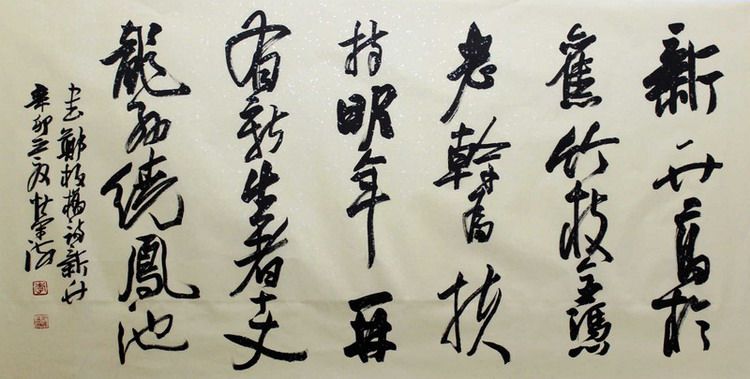 新竹高於
舊竹枝全憑
老幹為扶
持明年再
有新生者十丈
龍孫繞鳳池
书鄭板橋詩新竹
辛卯之夏